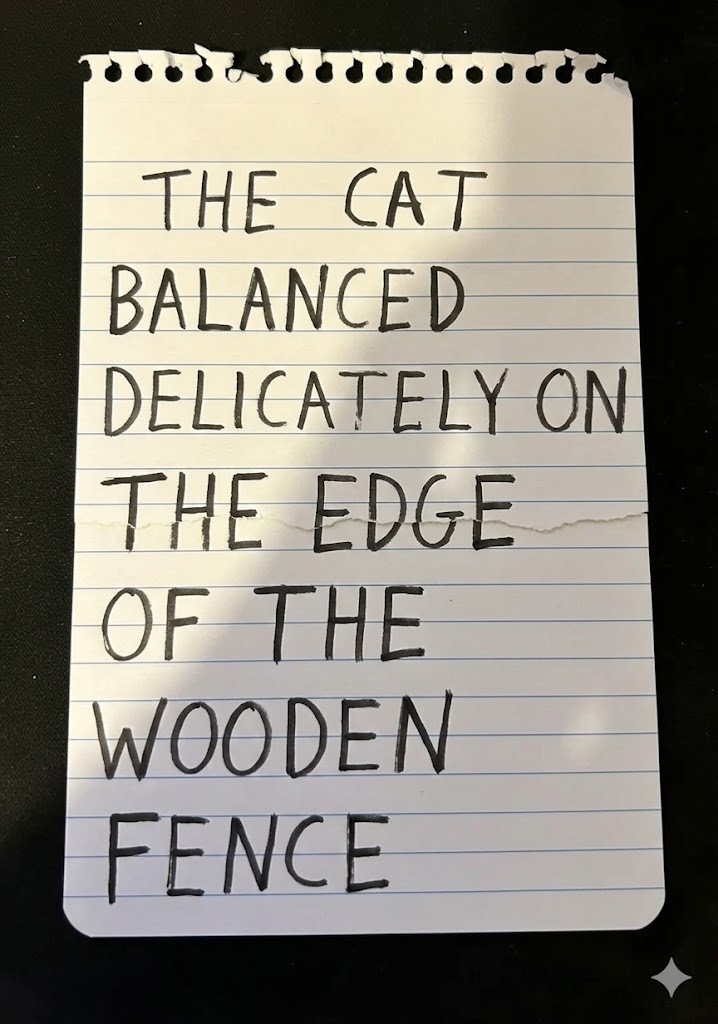 THE CAT
BALANCED
DELICATELY ON
THE EDGE
OF THE
WOODEN
FENCE